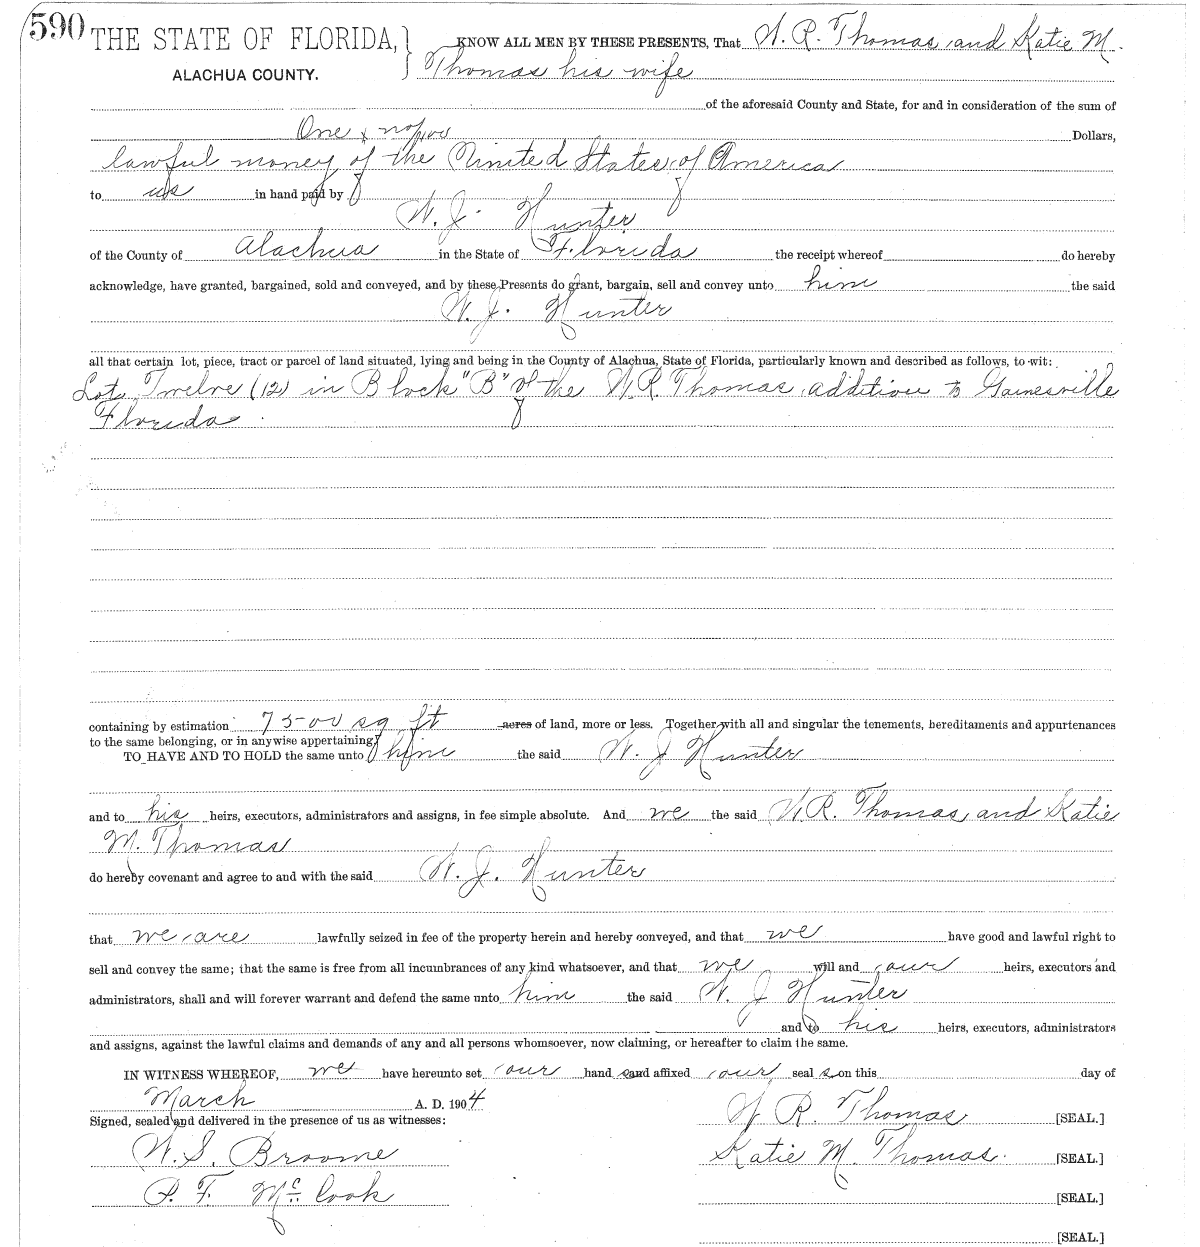 590
THE STATE OF FLORIDA, KNOW ALL MEN BY THESE PRESENTS, That W. R. Thomas and Katie M.
ALACHUA COUNTY. Thomas his wife
of the aforesaid County and State, for and in consideration of the sum of
One & no/00 Dollars,
lawful money of the United States of America
to us in hand paid by
W. J. Hunter
of the County of Alachua in the State of Florida the receipt whereof do hereby
acknowledge, have granted, bargained, sold and conveyed, and by these Presents do grant, bargain, sell and convey unto him the said
W. J. Hunter
all that certain lot, piece, tract or parcel of land situated, lying and being in the County of Alachua, State of Florida, particularly known and described as follows, to-wit:
Lot Twelve (12) in Block "B" of the W. R. Thomas addition to Gainesville
Florida
containing by estimation 7500 sq ft acres of land, more or less. Together with all and singular the tenements, hereditaments and appurtenances
to the same belonging, or in anywise appertaining,
TO HAVE AND TO HOLD the same unto him the said W. J Hunter
and to his heirs, executors, administrators and assigns, in fee simple absolute. And we the said W. R. Thomas and Katie
M. Thomas
do hereby covenant and agree to and with the said W. J. Hunter
that we are lawfully seized in fee of the property herein and hereby conveyed, and that we have good and lawful right to
sell and convey the same; that the same is free from all incumbrances of any kind whatsoever, and that we will and our heirs, executors and
administrators, shall and will forever warrant and defend the same unto him the said W. J Hunter
and to his heirs, executors, administrators
and assigns, against the lawful claims and demands of any and all persons whomsoever, now claiming, or hereafter to claim the same.
IN WITNESS WHEREOF, we have hereunto set our hand s and affixed our seal s on this day of
March A. D. 1904
Signed, sealed and delivered in the presence of us as witnesses:
W. R. Thomas [SEAL.]
W. S. Broome Katie M. Thomas. [SEAL.]
P. F. McCook [SEAL.]
[SEAL.]